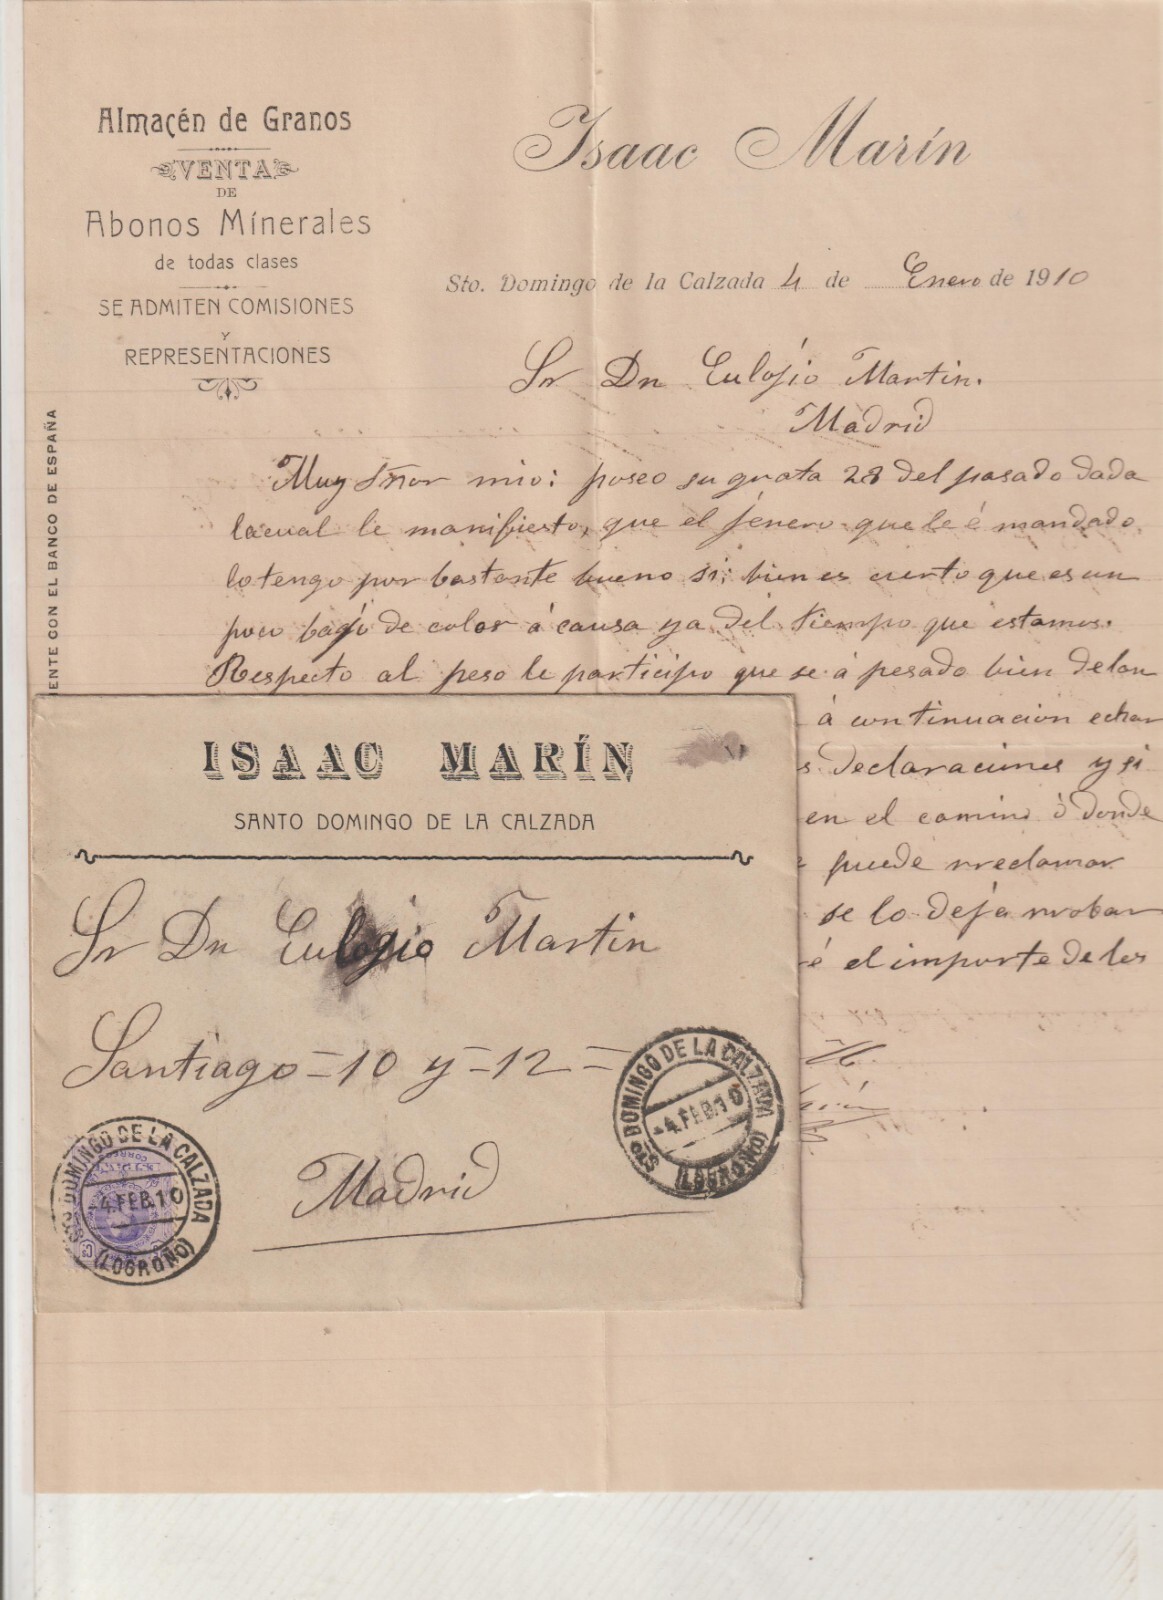 Almacén de Granos
VENTA
DE
Abonos Minerales
de todas clases
SE ADMITEN COMISIONES
Y
REPRESENTACIONES
ENTE CON EL BANCO DE ESPAÑA
Isaac Marín
Sto. Domingo de la Calzada 4 de Enero de 1910
Sr Dn Eulojio Martin.
Madrid
Muy Señor mio: poseo su grata 28 del pasado dada
lacual le manifiesto, que el jenero que le é mandado
lo tengo por bastante bueno si; bien es cierto que es un
poco bajo de color á causa ya del tiempo que estamos.
Respecto al peso le participo que se á pesado bien delan
á continuacion echar
s declaraciones y si
en el camino ó donde
puede rreclamar
se lo deja rrobar
é el importe de los
ISAAC MARÍN
SANTO DOMINGO DE LA CALZADA
Sr Dn Eulogio Martin
Santiago = 10 y = 12 =
Madrid
STO DOMINGO DE LA CALZADA
-4.FEB.10
(LOGROÑO)
STO DOMINGO DE LA CALZADA
-4.FEB.10
(LOGROÑO)